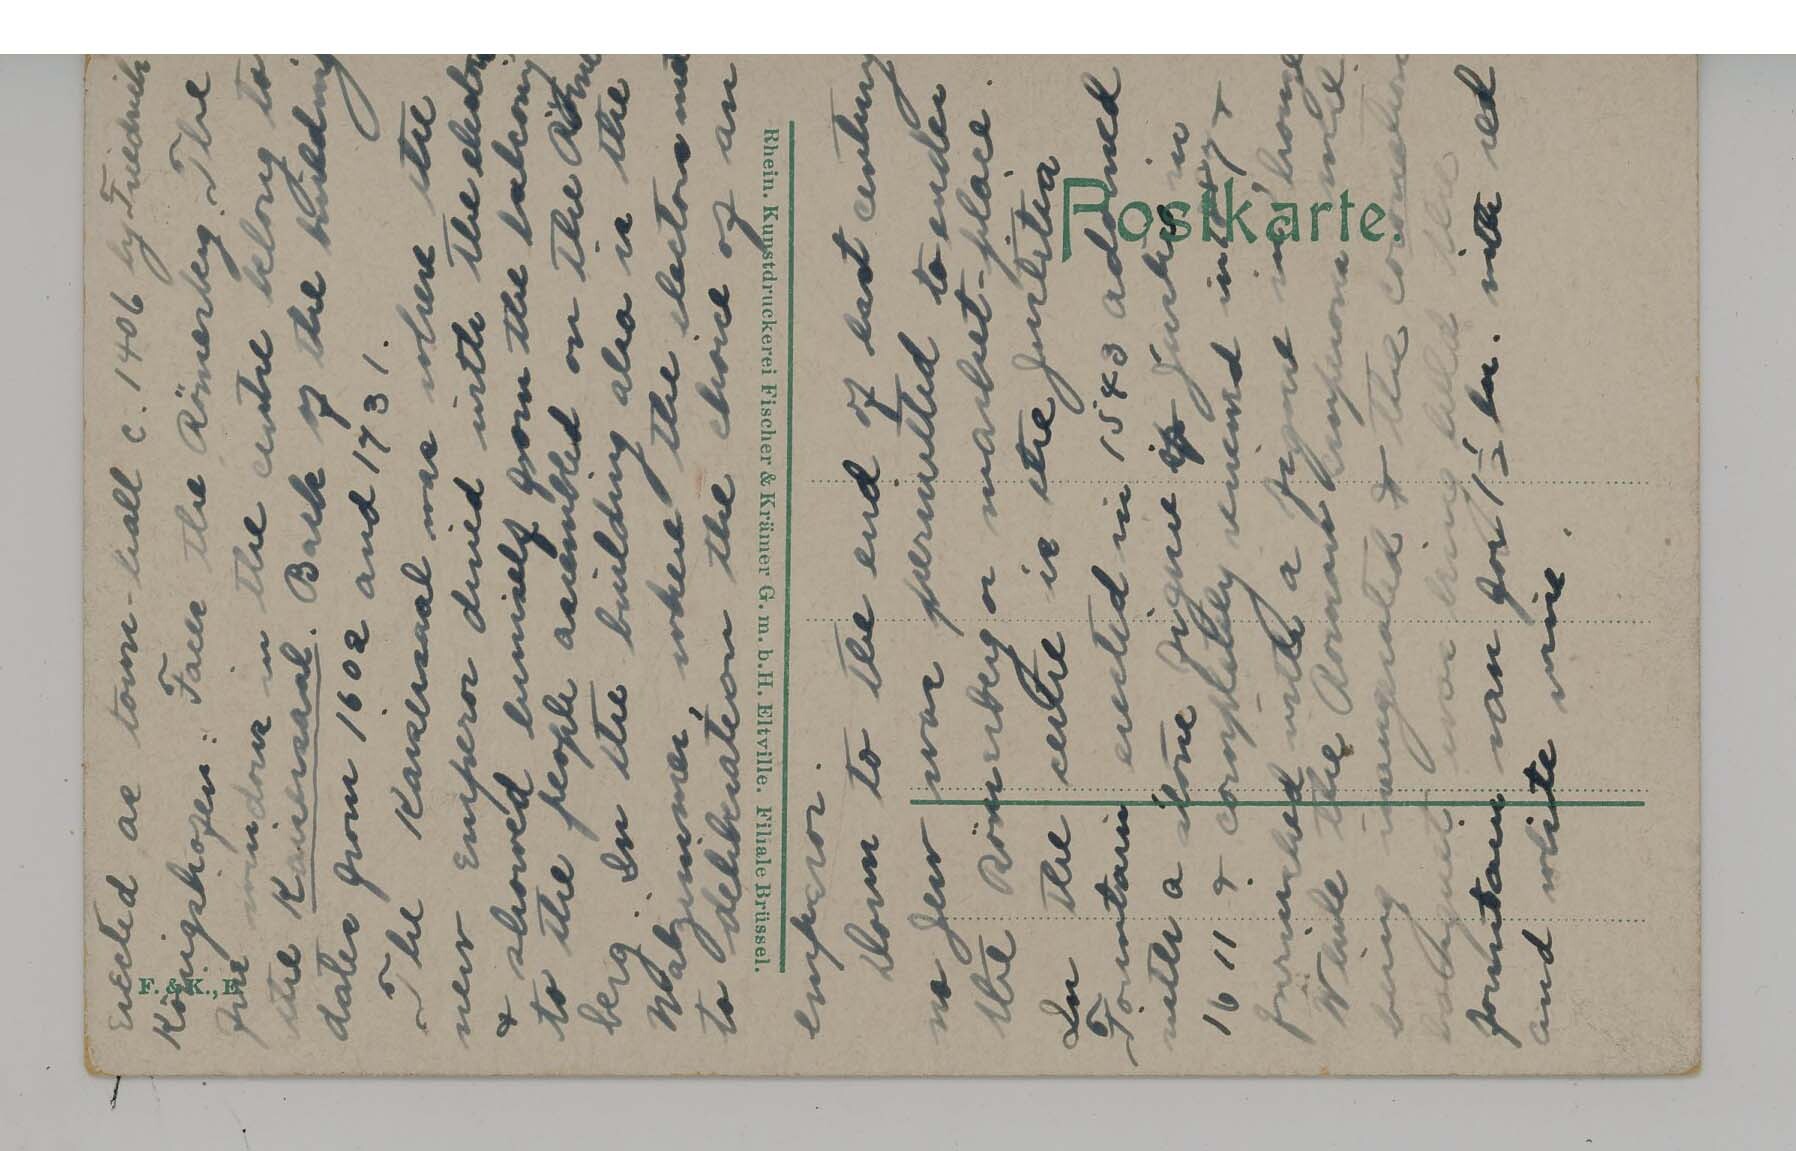 Erected as town-hall c. 1406 by Friedrich
Königshofen. Faces the Römerberg. The
five windows in the centre belong to
the Kaisersaal. Back of the building
dates from 1602 and 1731.
The Kaisersaal was where the
new Emperor dined with the electors
& showed himself from the balcony
to the people assembled on the Römer
berg. In the building also is the
Wahzimmer, where the electors met
to deliberation the choice of an
emperor.
Down to the end of last century
no Jew was permitted to enter
the Römerberg or market-place.
In the centre is the Justitia
Fountain erected in 1543 adorned
with a stone figure of Justice in
1611 & completely renewed in &
furnished with a figure in bronze
While the Roman Emperors were
being inaugurated & the coronation
banquet was being held the
fountain ran for 1½ hr. with red
and white wine.
Postkarte.
Rhein. Kunstdruckerei Fischer & Krämer G. m. b. H. Eltville. Filiale Brüssel.
F. & K., E